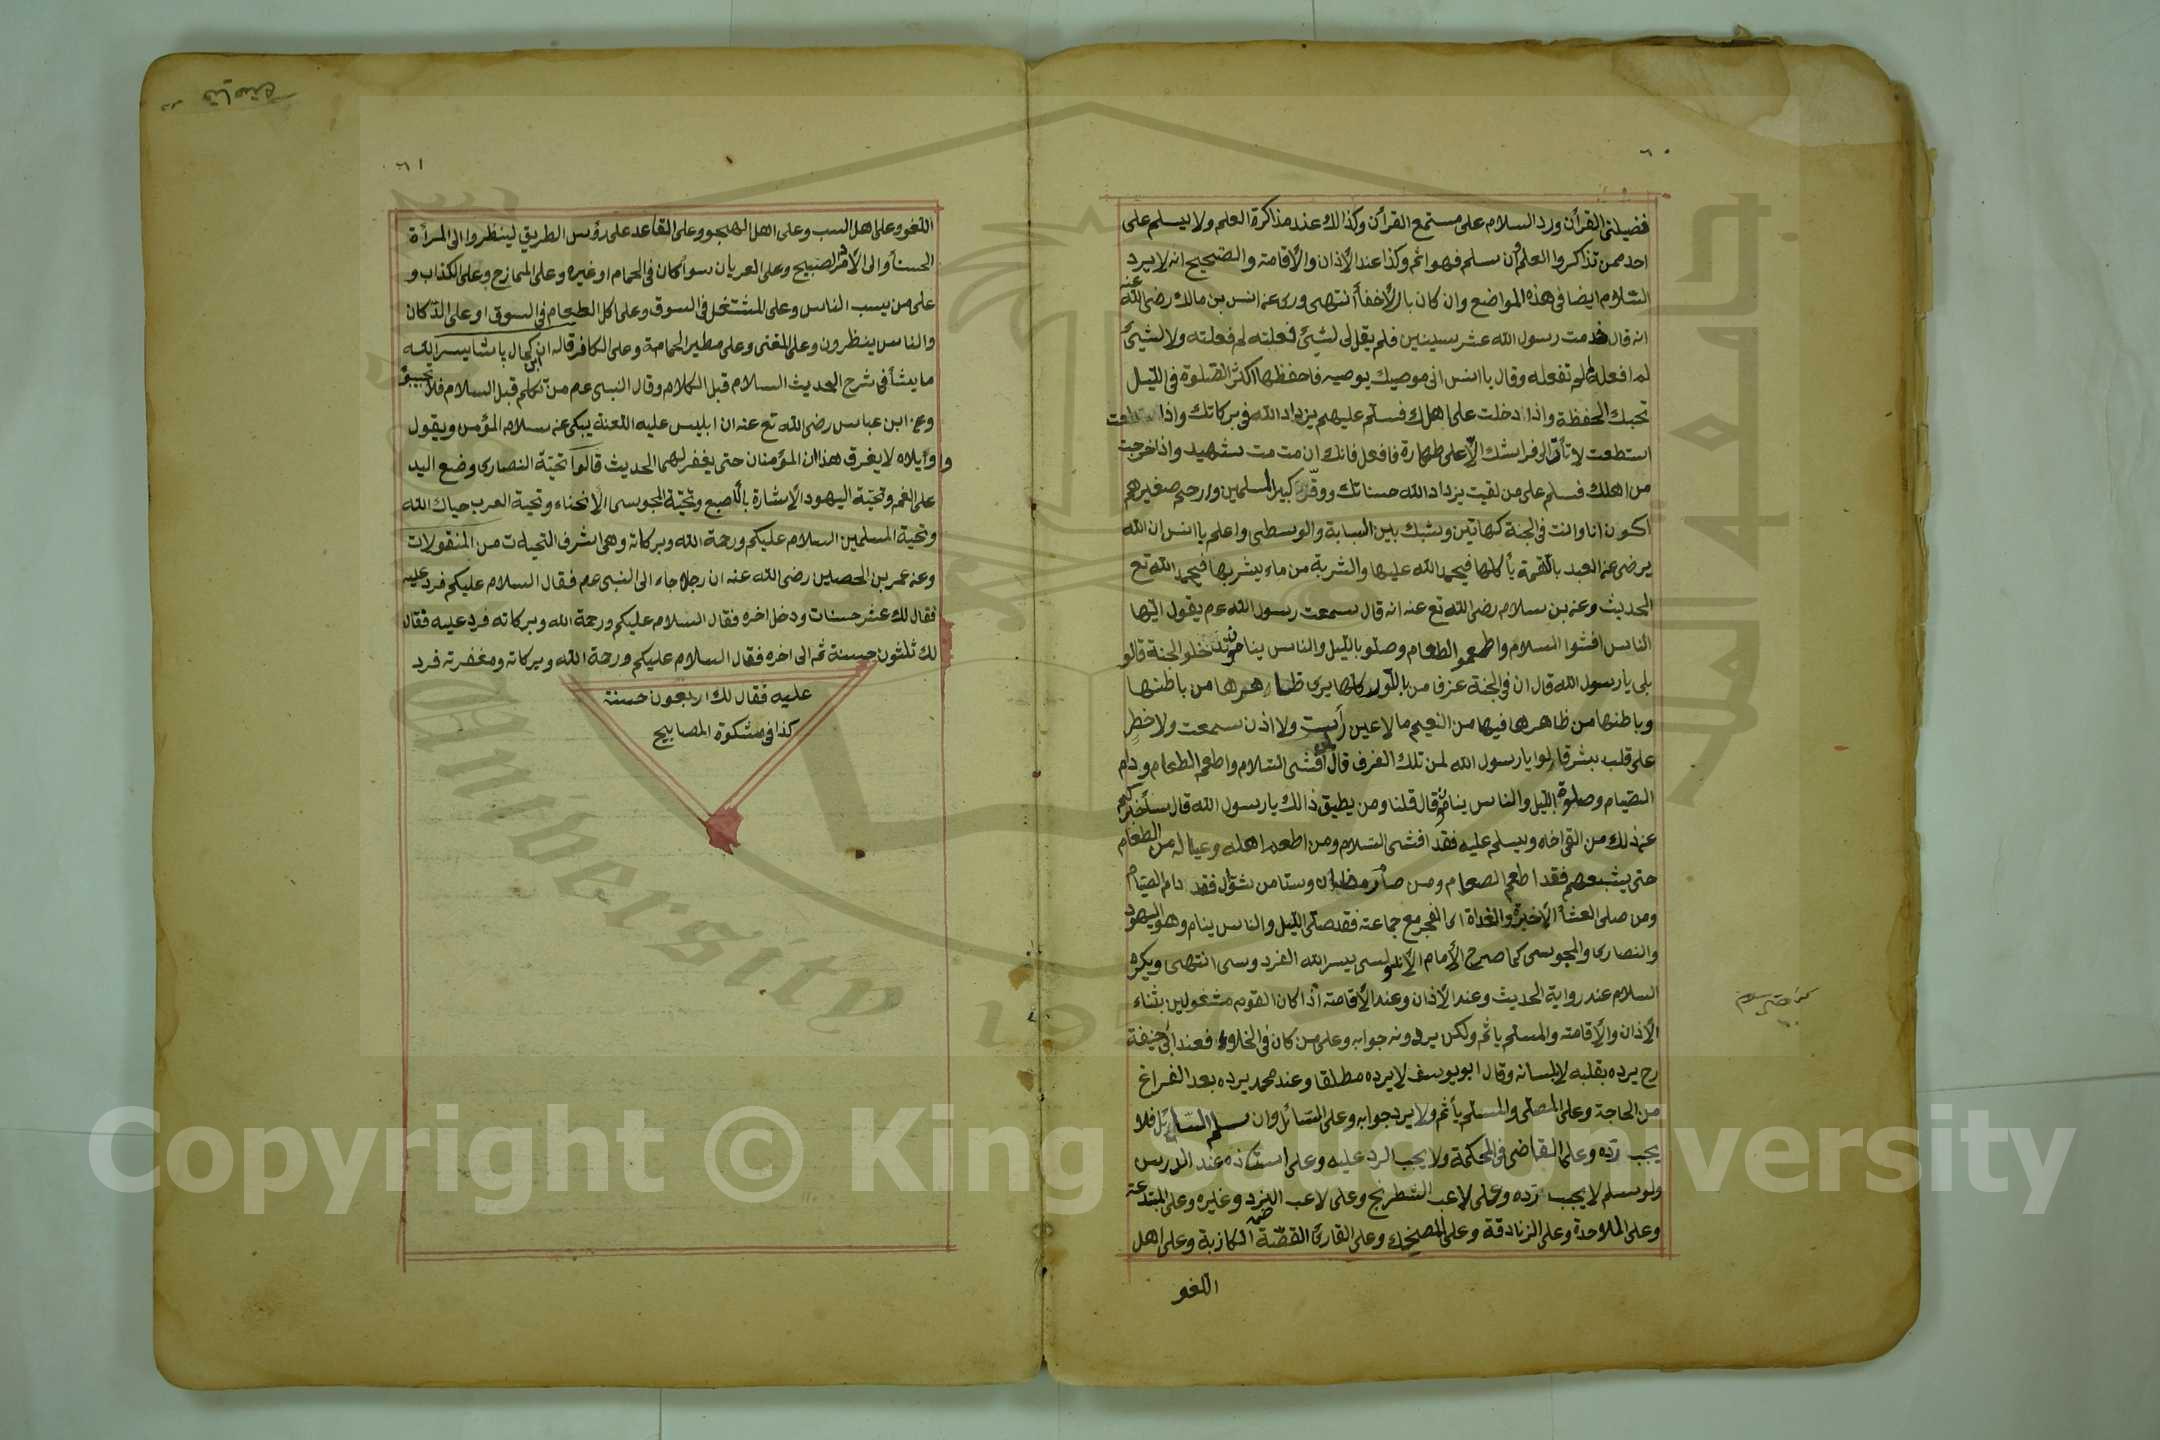 ٦٠
فضيلتى القرأن ورد السلام على مستمع القرأن وكذالك عند مذاكرة العلم ولا يسلم على
احد ممن تذاكروا العلم وأن سلم فهو اثم وكذا عند الأذان والأقامة والصحيح انه لا يرد
السلام ايضا فى هذه المواضع وان كان بالأخفأ انتهى وروى عنه انس بن مالك رضى الله عنه
انه قال خدمت رسول الله عشر سينين فلم يقل لى لشيئ فعلته لم فعلته ولا لشيئ
لم افعله لم لا تفعله وقال يا انس انى موصيك بوصيه فاحفظها اكثر الصلوة فى الليل
تحبك الحفظة واذا دخلت على اهلك فسلم عليهم يزداد الله فى بركاتك واذا
استطعت لا تأتى الى فراشك الأعلى طهارة فافعل فانك ان مت مت شهيد واذا خرجت
من اهلك فسلم على من لقيت يزداد الله حسناتك ووقر كبير المسلمين وارحم صغيرهم
اكون انا وانت فى الجنة كهاتين وشبك بين السبابة والوسطى واعلم يا انس ان الله
يرضى عنه العبد باللقمة يأكلها فيحمد الله عليها والشربة من ماء يشربها فيحمد الله تع
الحديث وعنه بن سلام رضى الله تع عنه انه قال سمعت رسول الله عم يقول ايها
الناس افشوا السلام واطعمو الطعام وصلو بالليل والناس ينامون تدخلو الجنة قالو
بلى يا رسول الله قال ان فى الجنة غرفا من باللور كلها يرى ظاهرها من باطنها
وباطنها من ظاهرها فيها من النعيم مالا عين رأيت ولا اذن سمعت ولا خطر
على قلب بشر قالوا يا رسول الله لمن تلك الغرف قال لمن أفشى السلام واطعم الطعام ودام
الصيام وصلوة الليل والناس ينامون قال قلنا ومن يطيق ذالك يا رسول الله قال سأخبركم
عنه ذلك من القى اخاه ويسلم عليه فقد افشى السلام ومن اطعم اهله وعياله من الطعام
حتى يشبعهم فقد اطعم الطعام ومن صام رمظان وستا من شوال فقد دام الصيام
ومن صلى العشأ الأخيرة والغداة اى الفجر مع جماعته فقد صلى الليل والناس ينام وهو اليهود
والنصارى والمجوسى كما صرح الأمام الأندلوسى يسر الله الفردوسى انتهى ويكره
السلام عند رواية الحديث وعند الأذان وعند الأقامته أذا كان القوم مشغولين بثناء
الأذان والأقامته والمسلم ياثم ولكن يردونه جوابه وعلى من كان فى الخلاء فعند ابى حنيفة
رح يرده بقلبه لا بلسانه وقال ابو يوسف لا يرده مطلقا وعند محمد يرده بعد الفراغ
من الحاجة وعلى المصلى والمسلم يأثم ولا يرد جوابه وعلى السائل وان سلم السائل فلا
يجب رده وعلى القاضى فى المحكمة ولا يجب الرد عليه وعلى استاذه عند الدرس
ولو سلم لا يجب رده وعلى لاعب الشطرنج وعلى لاعب النرد وغيره وعلى المبتدعة
وعلى الملاحدة وعلى الزنادقة وعلى المضحك وعلى القارئ القصة الكاذبة وعلى اهل
اللغو
٦١
اللغو وعلى اهل السب وعلى اهل الهجو وعلى القاعد على رؤس الطريق لينظروا الى المرأة
الحسنأ والى الأمر الصبيح وعلى العريان سوأ كان فى الحمام او غيره وعلى الممازح وعلى الكذاب و
على من يسب الناس وعلى المشتغل فى السوق وعلى اكل الطعام فى السوق او على الدكان
والناس ينظرون وعلى المغنى وعلى مطير الحمامة وعلى الكافر قاله ابن كمال باشا يسر الله
ما يشأ فى شرح الحديث السلام قبل الكلام وقال النبى عم من تكلم قبل السلام فلا تجيبوا
وعن ابن عباس رضى الله تع عنه ان ابليس عليه اللعنة يبكى عنه سلام المؤمن ويقول
واويلاه لا يغرق هذاان المؤمنان حتى يغفر لهما الحديث قالوا تحية النصارى وضع اليد
على الغم وتحية اليهود الأشارة بالأصبع وتحية المجوسى الأنحناء وتحية العرب حياك الله
وتحية المسلمين السلام عليكم ورحمة الله وبركاته وهى اشرف التحيات من المنقولات
وعنه عمر بن الحصين رضى الله عنه ان رجلا جاء الى النبى عم فقال السلام عليكم فرد عليه
فقال لك عشر حسنات ودخل اخره فقال السلام عليكم ورحمة الله وبركاته فرد عليه فقال
لك ثلثون حسنة ثم الى اخره فقال السلام عليكم ورحمة الله وبركاته ومغفرته فرد
عليه فقال لك اربعون حسنة
كذا فى مشكوة المصابيح
Copyright © King Saud University